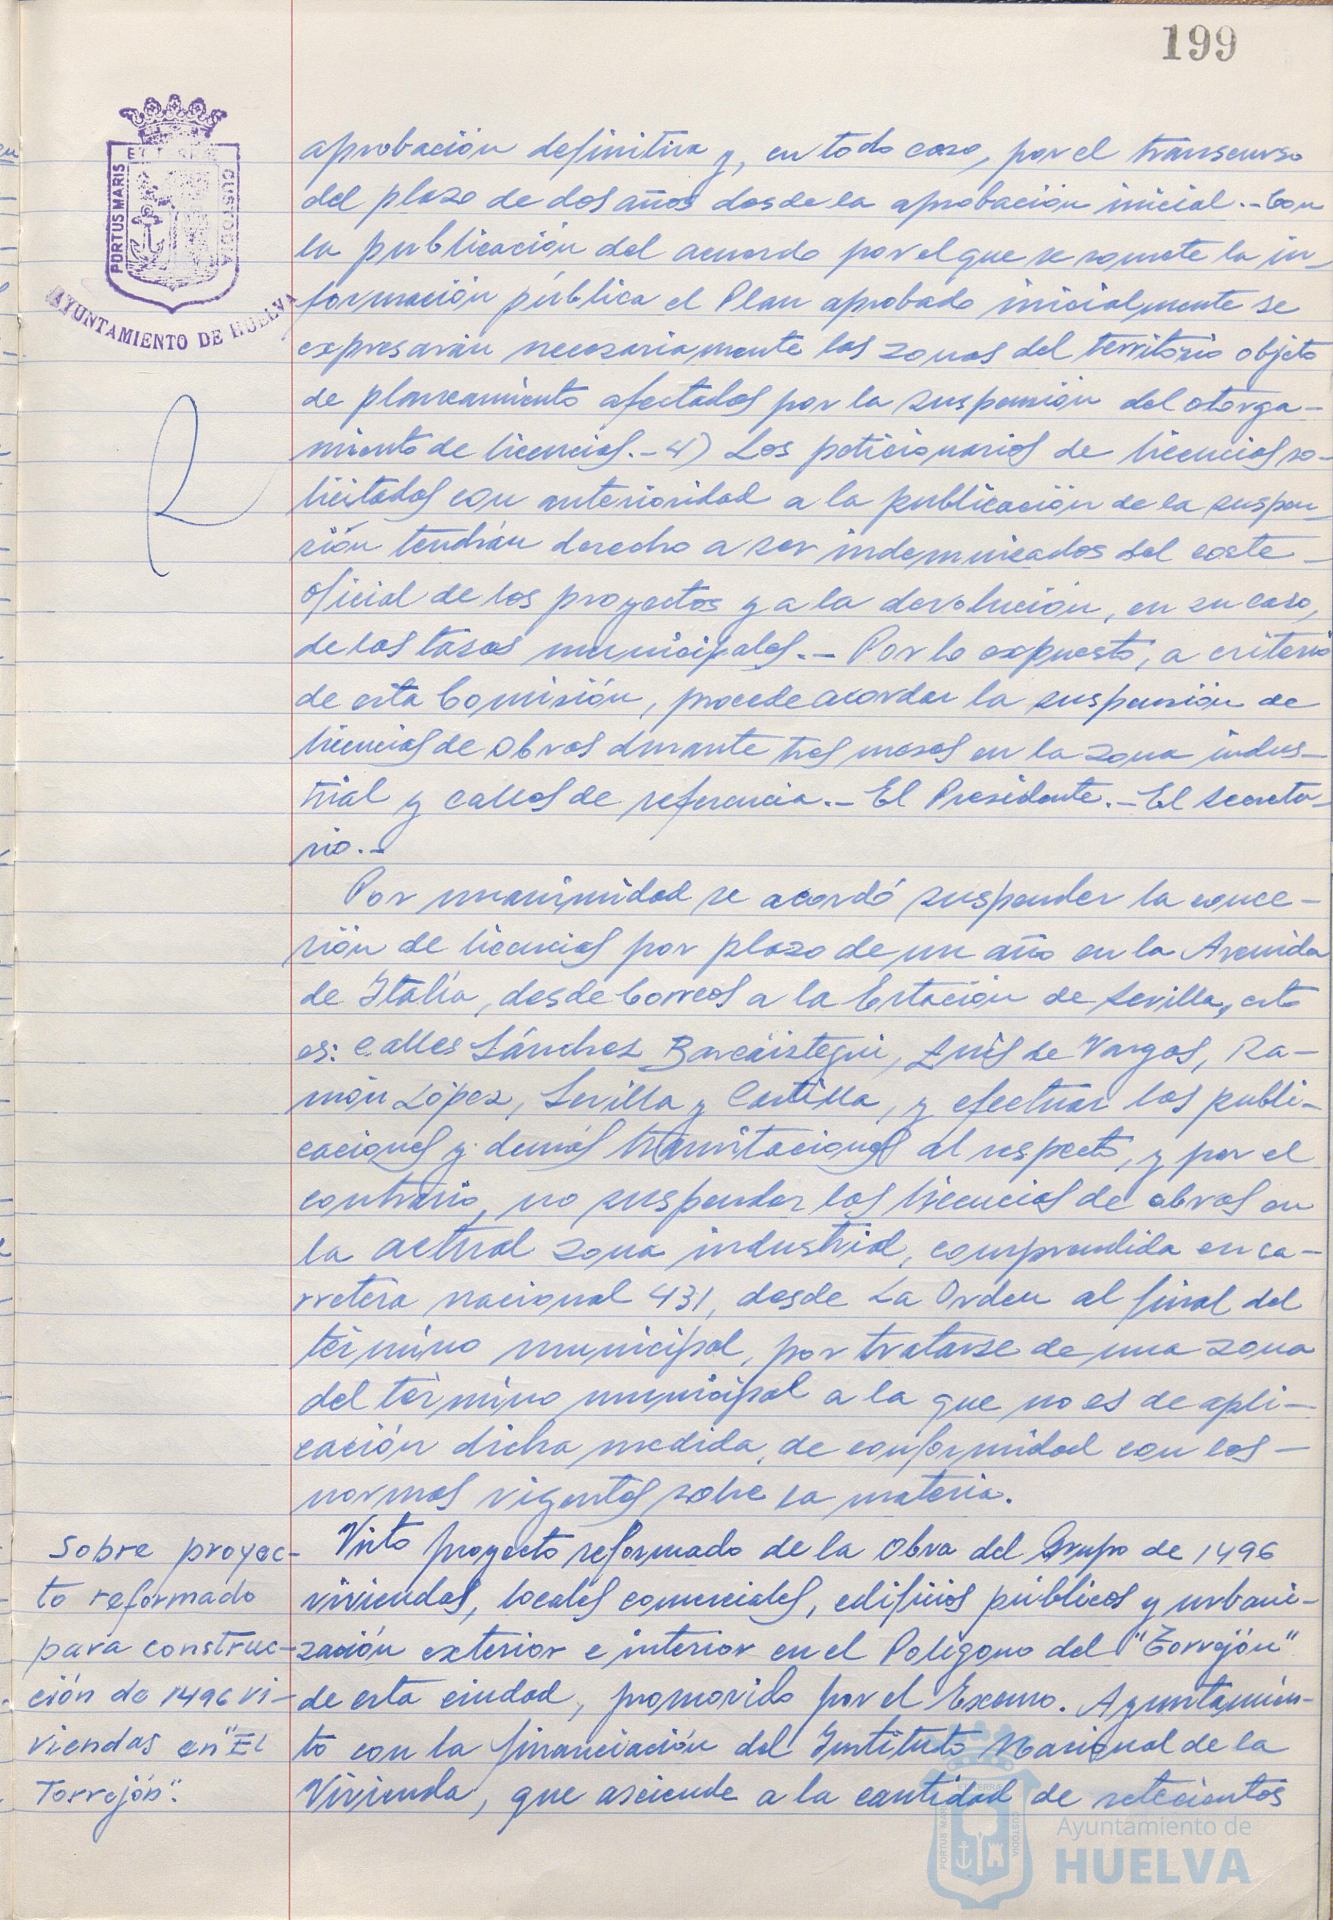 199
PORTUS MARIS
CUSTODIA
AYUNTAMIENTO DE HUELVA
aprobación definitiva y, en todo caso, por el transcurso
del plazo de dos años desde la aprobación inicial.- Con
la publicación del acuerdo por el que se somete la in-
formación pública el Plan aprobado inicialmente se
expresarán necesariamente las zonas del territorio objeto
de planeamiento afectadas por la suspensión del otorga-
miento de licencias.- 4) Los peticionarios de licencias so-
licitadas con anterioridad a la publicación de la suspen-
sión tendrán derecho a ser indemnizados del coste
oficial de los proyectos y a la devolución, en su caso,
de las tasas municipales.- Por lo expuesto, a criterio
de esta Comisión, procede acordar la suspensión de
licencias de obras durante tres meses en la zona indus-
trial y calles de referencia.- El Presidente.- El Secreta-
rio.-
Por unanimidad se acordó suspender la conce-
sión de licencias por plazo de un año en la Avenida
de Italia, desde Correos a la Estación de Sevilla, esto
es: calles Sánchez Barcáiztegui, Luis de Vargas, Ra-
món López, Sevilla y Castilla, y efectuar las publi-
caciones y demás tramitaciones al respecto, y por el
contrario, no suspender las licencias de obras en
la actual zona industrial, comprendida en ca-
rretera nacional 431, desde La Orden al final del
término municipal, por tratarse de una zona
del término municipal a la que no es de apli-
cación dicha medida, de conformidad con las
normas vigentes sobre la materia.
Sobre proyec-
to reformado
para construc-
ción de 1496 vi-
viendas en "El
Torrejón".
Visto proyecto reformado de la Obra del Grupo de 1496
viviendas, locales comerciales, edificios públicos y urbani-
zación exterior e interior en el Polígono del "Torrejón"
de esta ciudad, promovido por el Excmo. Ayuntamien-
to con la financiación del Instituto Nacional de la
Vivienda, que asciende a la cantidad de setecientos
Ayuntamiento de
HUELVA